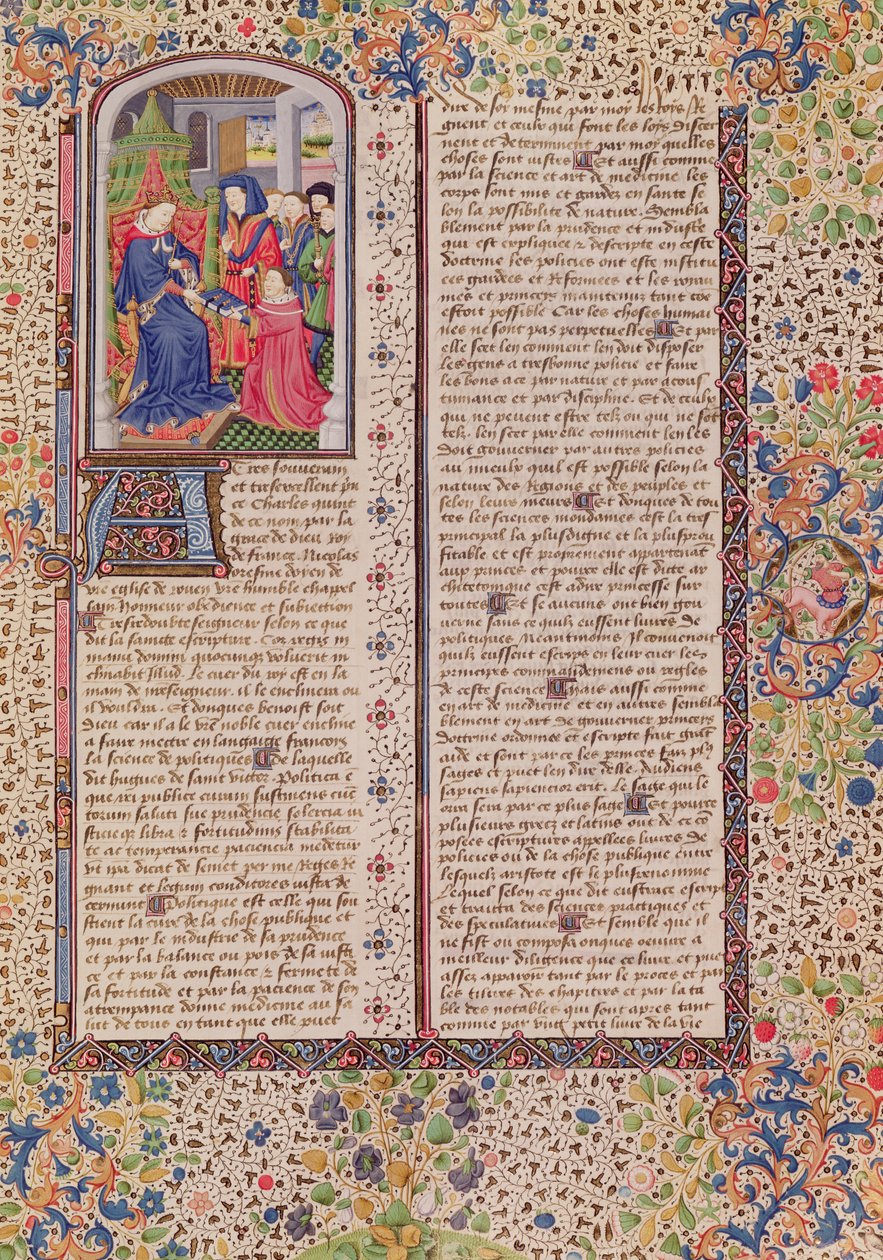 A Tres souverain
et tresexcellent pn
ce Charles quint
de ce nom par la
grace de dieu roy
de france. Nicolas
oresme doyen de
vre eglise de rouen vre humble chapel
lain Honneur obedience et subiection
Tresredoubte seigneur selon ce que
dit la sainte escripture. Cor regis in
manu domini quocunque voluerit in
clinabit illud. Le cuer du roy est en la
main de nreseigneur. il le enclinera ou
il vouldra. Et donques benoist soit
dieu car il a le vre noble cuer encline
a faire mectre en langaige francois
la science de politiques De laquelle
dit hugues de saint victor. Politica e
que rei publice curam sustinens cunc
torum saluti sue prudencie solercia iu
sticieque libra et fortitudinis stabilita
te ac temperancie paciencia medetur
vt ipa dicat de semet per me Reges Re
gnant et legum conditores iusta de
cernunt Politique est celle qui sou
stient la cure de la chose publique et
qui par le industrie de sa prudence
et par la balance ou pois de sa iusti
ce et par la constance et fermete de
sa fortitude et par la pacience de son
attrempance donne medicine au sa
lut de tous en tant que elle puet
dire de soy mesme par moy les roys Re
gnent, et ceulx qui font les loys discer
nent et determinent par moy quelles
choses sont iustes Et aussi comme
par la science et art de medicine les
corps sont mis et gardez en sante se
lon la possibilite de nature. Sembla
blement par la prudence et industrie
qui est expliquee et descripte en ceste
doctrine les policies ont este institu
ees gardees et Reformees et les roiau
mes et princeps maintenuz tant cõe
estoit possible Car les choses humai
nes ne sont pas perpetuelles Et par
elle scet len comment len doit disposer
les gens a tresbonne policie et faire
les bons a ce par nature et par acous
tumance et par discipline. Et de ceulx
qui ne peuent estre telz ou qui ne sot
telz. len scet par elle comment len les
doit gouverner par autres policies
au mieulx quil est possible selon la
nature des Regions et des peuples et
selon leurs meurs Et donques de tou
tes les sciences mondaines cest la tres
principal la plus digne et la plus prou
fitable et est proprement appartenat
aux princes et pource elle est dicte ar
chitectonique cest adire princesse sur
toutes Et se aucuns ont bien gou
verne sans ce quilz eussent livres de
politiques Neantmoins il convenoit
quilz eussent escrips en leur cuer les
principes commandemens ou regles
de ceste science Mais aussi comme
en art de medicine et en autres sembla
blement en art de gouverner princeps
doctrine ordonnee et escripte fait grat
aide et sont par ce les princes faiz plus
sages et puet len dire delle. Audiens
sapiens sapiencior erit. Le sage qui le
orra sera par ce plus sage Et pource
plusieurs grecz et latins ont de ce co
posees escriptures appellees livres de
policies ou de la chose publique entre
lesquelx aristote est le plus renomme
lequel selon ce que dit eustrace escript
et traitta des sciences pratiques et
des speculatives Et semble que il
ne fist ou composa onques oeuvre a
meilleur diligence que ce livre et puet
assez apparoir tant par le proces et par
les tiltres des chapitres et par la ta
ble des notables qui sont apres tant
comme par vng petit livre de la vie